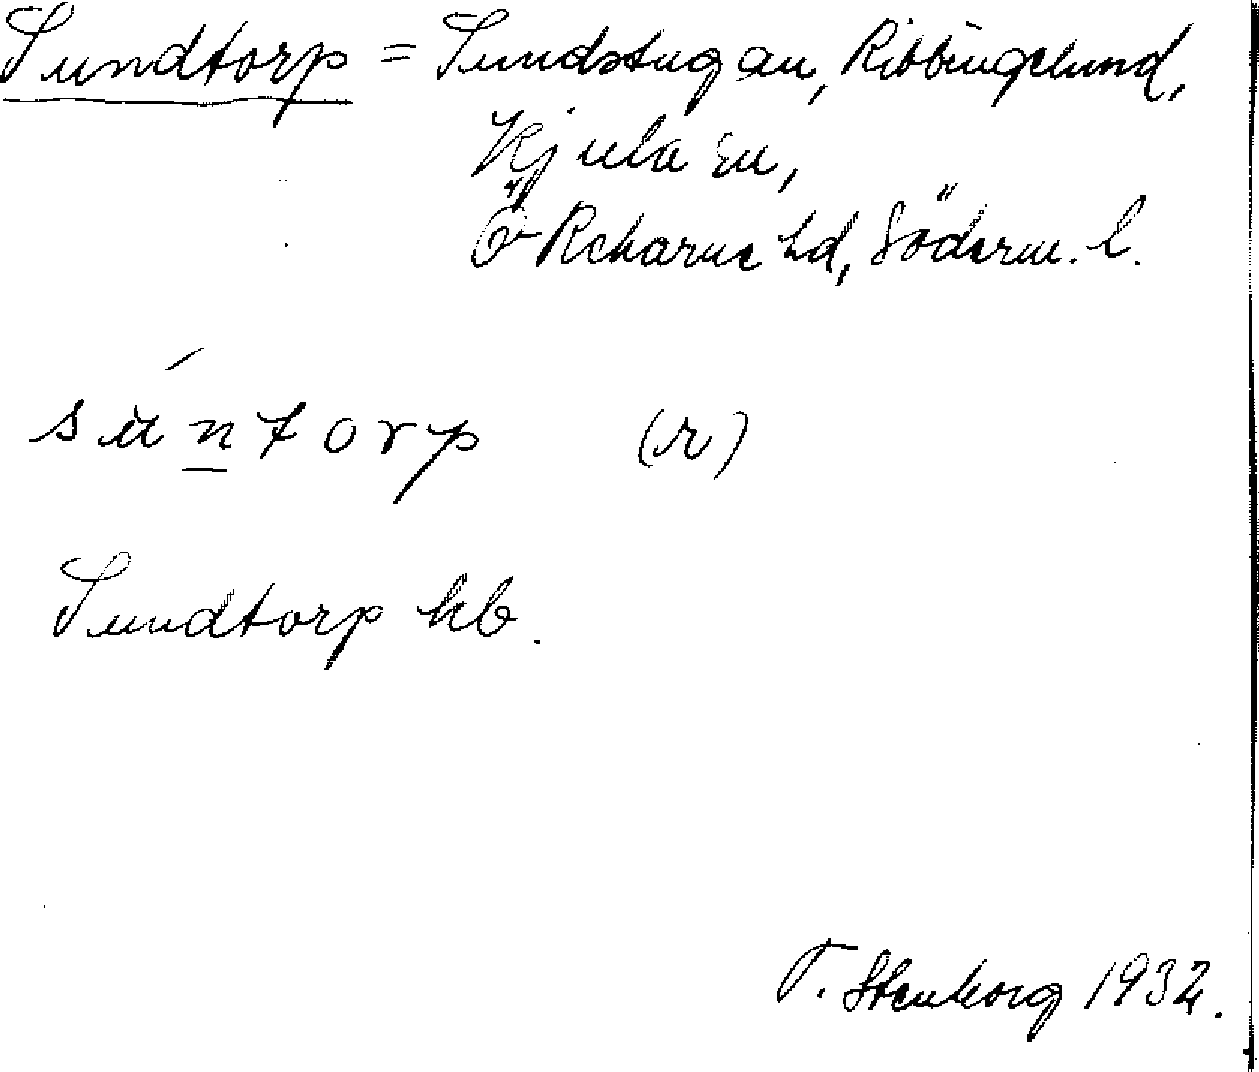 Sundtorp = Sundstugan, Ribbingelund,
Kjula sn,
Ö Rekarne hd, Söderm. l.
súntorp (r)
Sundtorp kb.
T. Stenborg 1932.